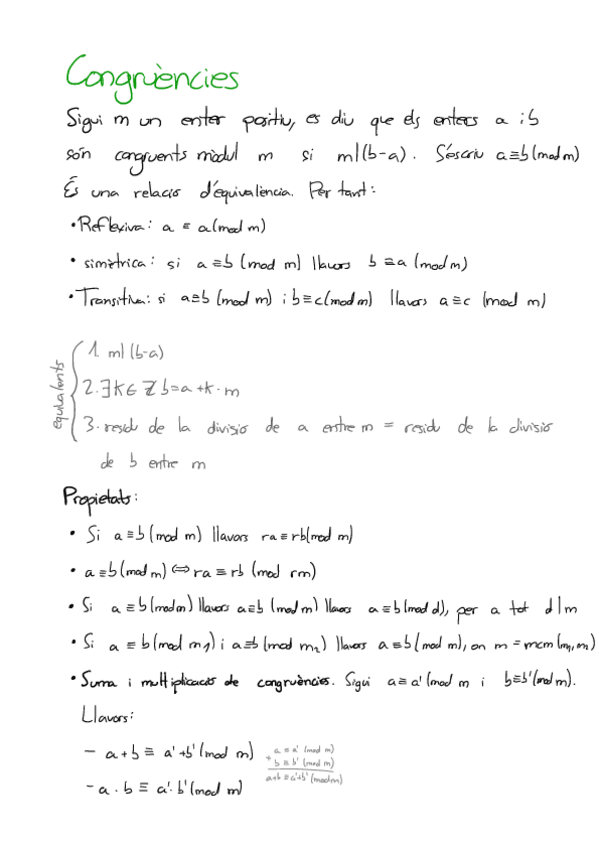 Congruències
Sigui m un enter positiu, es diu que els enters a i b
són congruents mòdul m si m|(b-a). S'escriu a≡b(mod m)
És una relació d'equivalència. Per tant:
• Reflexiva: a ≡ a(mod m)
• simètrica: si a≡b (mod m) llavors b≡a (mod m)
• Transitiva: si a≡b (mod m) i b≡c(mod m) llavors a≡c (mod m)
equivalents
1 m|(b-a)
2. ∃k∈ℤ b=a+k·m
3. residu de la divisió de a entre m = residu de la divisió
de b entre m
Propietats:
• Si a≡b(mod m) llavors ra≡rb(mod m)
• a≡b(mod m) ⇔ ra≡rb (mod rm)
• Si a≡b(mod m) llavors a≡b (mod m) llavors a≡b(mod d), per a tot d|m
• Si a≡b(mod m₁) i a≡b(mod m₂) llavors a≡b(mod m), on m=mcm(m₁,m₂)
• Suma i multiplicació de congruències. Sigui a≡a'(mod m i b≡b'(mod m).
Llavors:
- a+b ≡ a'+b'(mod m)
a≡a' (mod m)
+ b≡b' (mod m)
a+b≡a'+b'(mod m)
- a·b ≡ a'·b'(mod m)